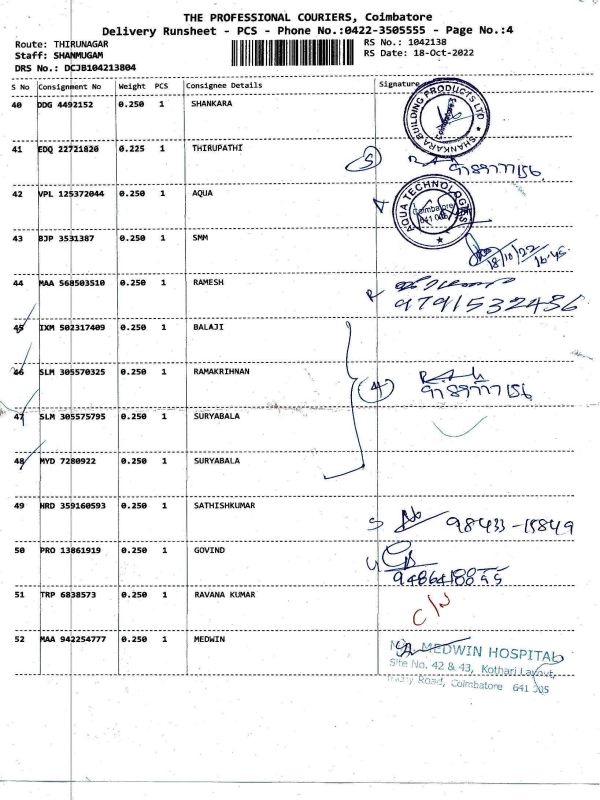 THE PROFESSIONAL COURIERS, Coimbatore
Delivery Runsheet - PCS - Phone No.:0422-3505555 - Page No.:4
Route: THIRUNAGAR
RS No.: 1042138
Staff: SHANMUGAM
RS Date: 18-Oct-2022
DRS No.: DCJB104213804
S No Consignment No Weight PCS Consignee Details Signature
40 DDG 4492152 0.250 1 SHANKARA
SHANKARA BUILDING PRODUCTS LTD
41 EDQ 22721820 0.225 1 THIRUPATHI
5
9789777156
42 VPL 125372044 0.250 1 AQUA
AQUA TECHNOLOGIES
Coimbatore
43 BJP 3531387 0.250 1 SMM
18/10/22
16:45
44 MAA 568503510 0.250 1 RAMESH
9791532486
45 IXM 502317409 0.250 1 BALAJI
46 SLM 305570325 0.250 1 RAMAKRIHNAN
4
9789777156
47 SLM 305575795 0.250 1 SURYABALA
48 MYD 7280922 0.250 1 SURYABALA
49 HRD 359160593 0.250 1 SATHISHKUMAR
S 98433-15849
50 PRO 13861919 0.250 1 GOVIND
51 TRP 6838573 0.250 1 RAVANA KUMAR
C/N
52 MAA 942254777 0.250 1 MEDWIN
MEDWIN HOSPITAL
Site No. 42 & 43, Kothari Layout,
Road, Coimbatore 641 005